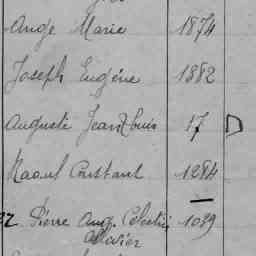 Ange Marie 1874
Joseph Eugène 1882
Auguste Jean Louis 17 D
Raoul Constant 1284
Pierre Aug. Célestin 1089
Olivier